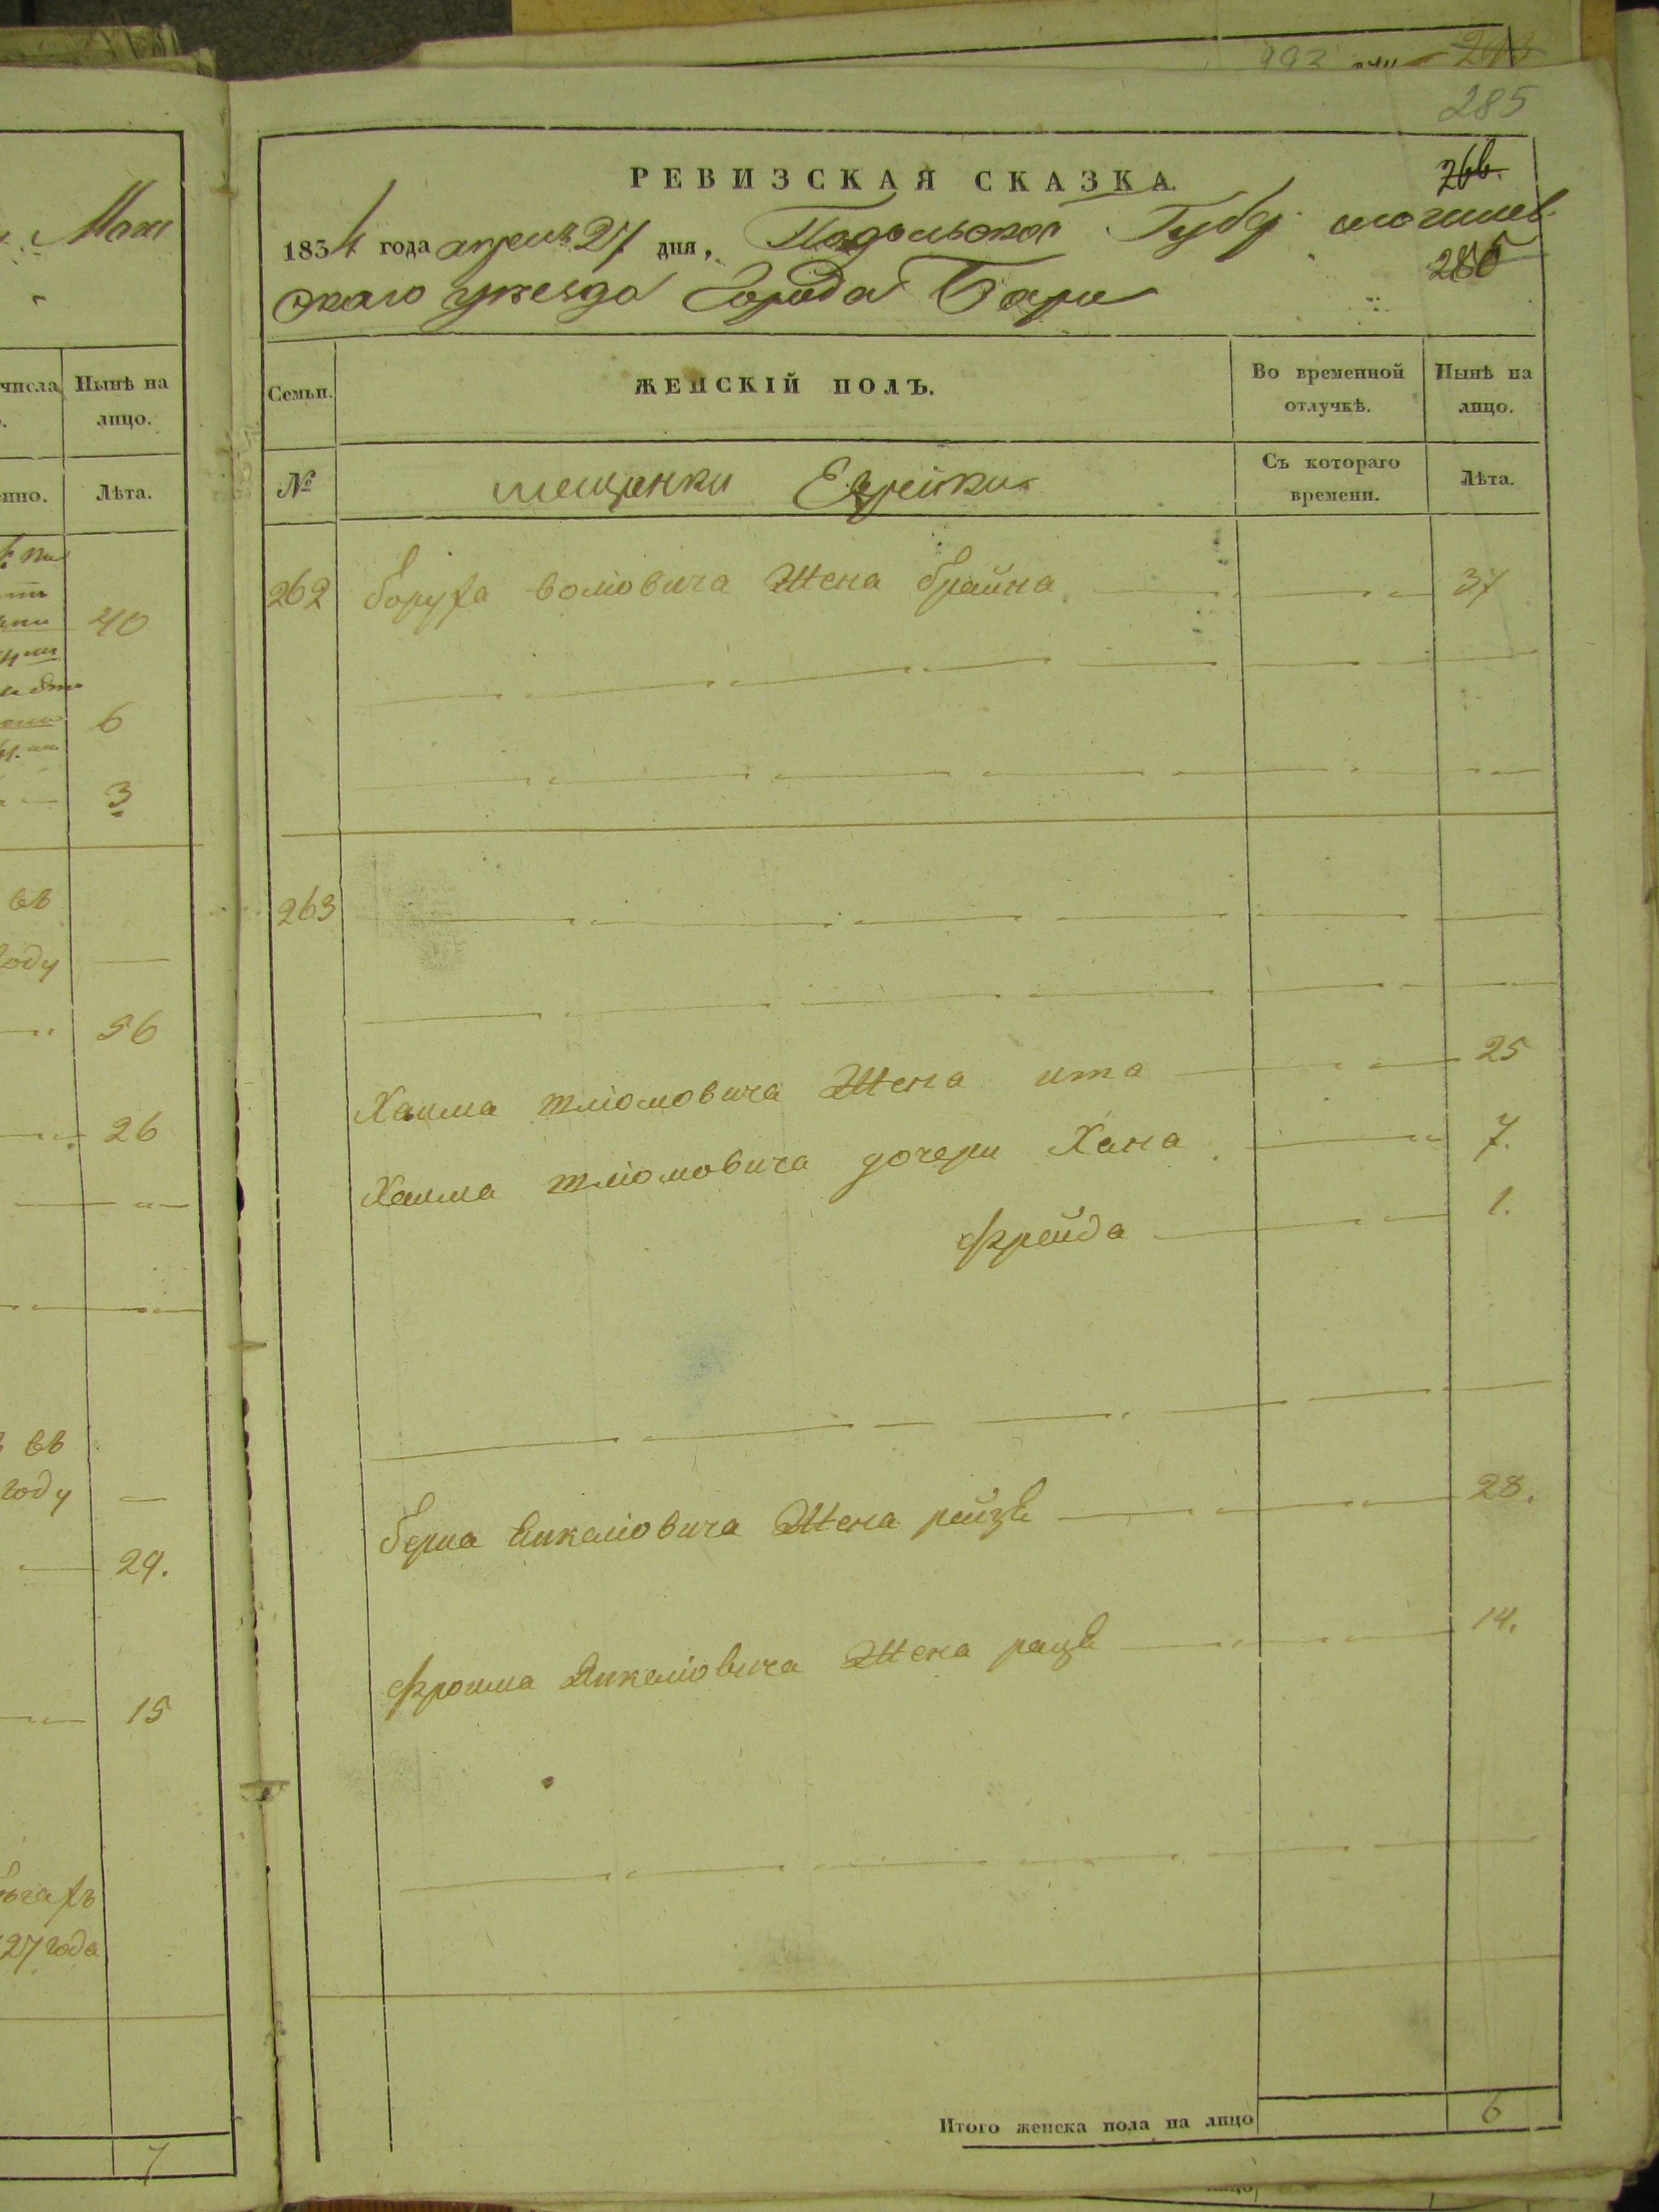 243
285
РЕВИЗСКАЯ СКАЗКА.
266.
1834 года апреля 27 дня, Подольской Губер: могилев-
285
скаго уезда Города Бара
числа
Нынѣ на
лицо.
Лѣта.
Семьи.
ЖЕНСКІЙ ПОЛЪ.
Во временной
отлучкѣ.
Нынѣ на
лицо.
№
мещанки Еврейки
Съ котораго
времени.
Лѣта.
40
6
3
въ
году
56
26
въ
году
29.
15
27 года
7
262 боруха волiовича Жена брайна 37
263
Хаима шлiомовича Жена ита 25
Хаима шлiомовича дочери Хана 7.
Фрейда 1.
берка Янкелiовича Жена рейзя 28.
Фроима Янкелiовича Жена раця 14.
Итого женска пола на лицо 6